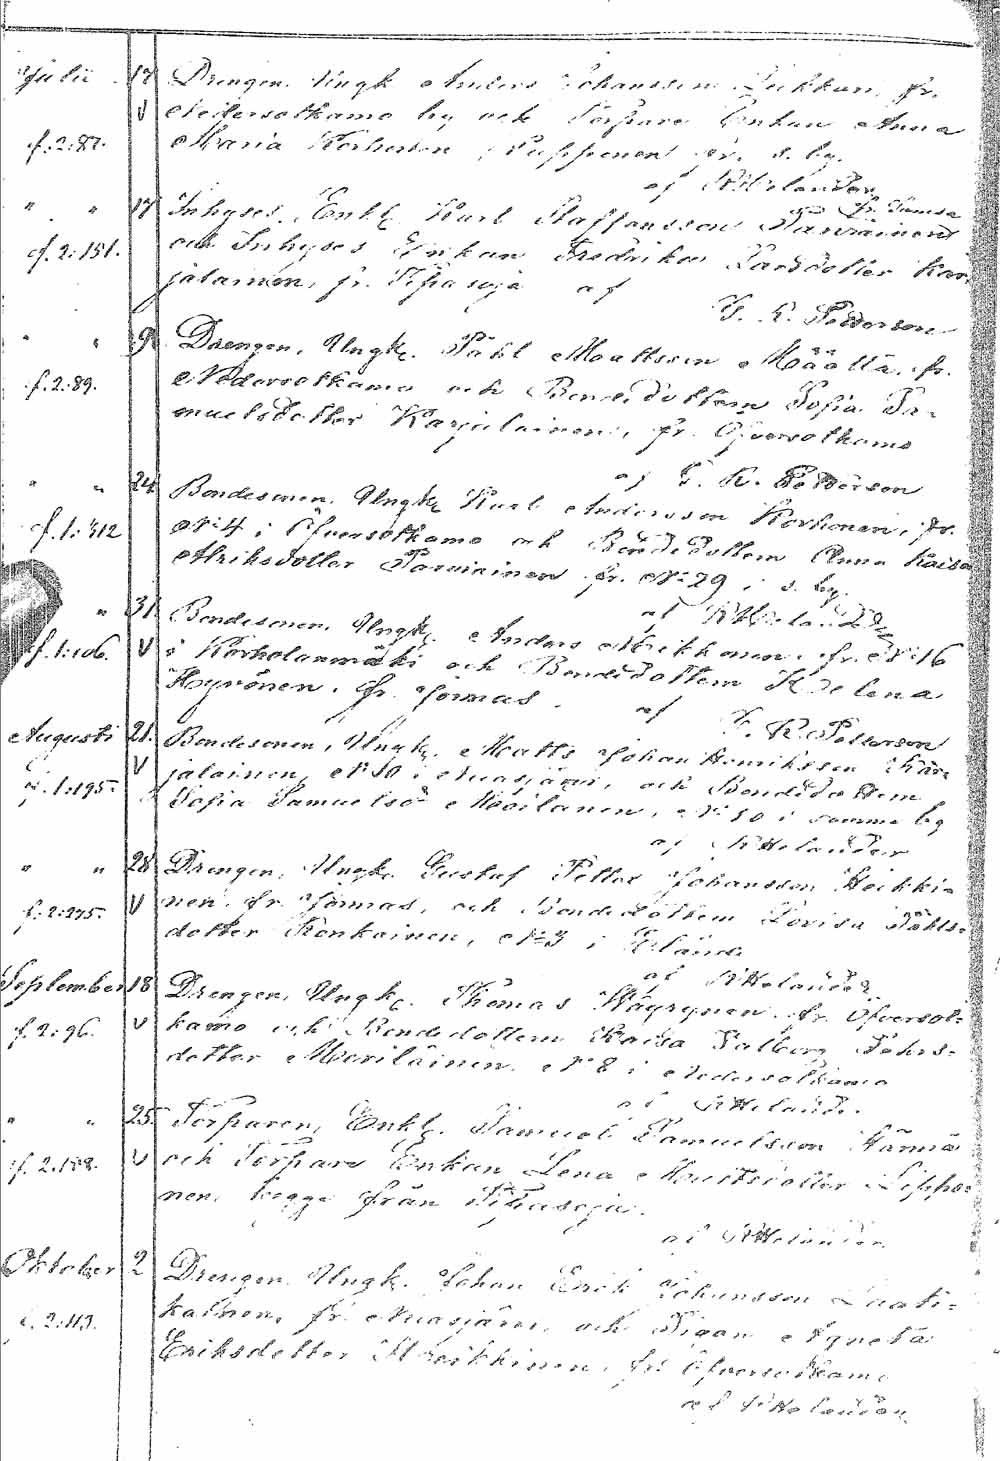 Julii 17 Drengen, Ungk. Anders Johansson Lukkari, fr.
V Nedersotkamo by och Torpare Enkan Anna
f. 2:87. Maria Korhonen, Puppenen fr. s. by.
af Helander
" " 17 Inhyses Enkl. Karl Staffansson Parviainen fr. Samsa
f. 2:151. och Inhyses Enkan Fredrika Larsdotter Kar-
jalainen, fr. Tipasoja af
G. R. Petterson
" " 9 Drengen, Ungk. Påhl Mattsson Määttä, fr.
f. 2:89. Nedersotkamo och Bondedottern Sofia Sa-
muelsdotter Karjalainen, fr. Öfversotkamo
af G. R. Petterson
" " 24 Bondesonen, Ungk. Karl Andersson Korhonen, fr.
f. 1:312 N:4 i Öfversotkamo och Bondedottern Anna Kaisa
Alriksdotter Parviainen fr. N:29 i s. by.
af Helander
" 31. Bondesonen, Ungk. Anders Mikkonen, fr. N:16
f. 1:106. V i Korholanmäki och Bondedottern Helena
Hyvönen, fr. Jormas. af G. R. Petterson
Augusti 21. Bondesonen, Ungk. Matts Johan Henriksson Kar-
V jalainen, N:30 i Nuasjärvi, och Bondedottern
f. 1:195. Sofia Samuelsd. Moilanen, N:30 i samma by
af Helander
" " 28 Drengen, Ungk. Gustaf Petter Johansson Heikki-
f. 2:275. V nen fr. Jormas, och Bondedottern Lovisa Påhls-
dotter Konkainen, N:3 i
af Helander
September 18 Drengen, Ungk. Thomas Väyrynen fr. Öfversot-
f. 2:96. V kamo och Bondedottern Kaisa Valborg Pehrs-
dotter Movilainen N:8 i Nedersotkamo
af Helander.
" " 25. Torparen, Enkl. Samuel Samuelsson Härmä
f. 2:188. V och Torpare Enkan Lena Mattsdotter Lippo-
nen, begge från Tipasoja.
af Helander
Oktober 2 Drengen, Ungk. Johan Erik Johansson Laati-
f. 2:113. kainen, fr. Nuasjärvi, och Pigan Agneta
Eriksdotter Heikkinen, fr. Öfversotkamo
af Helander.